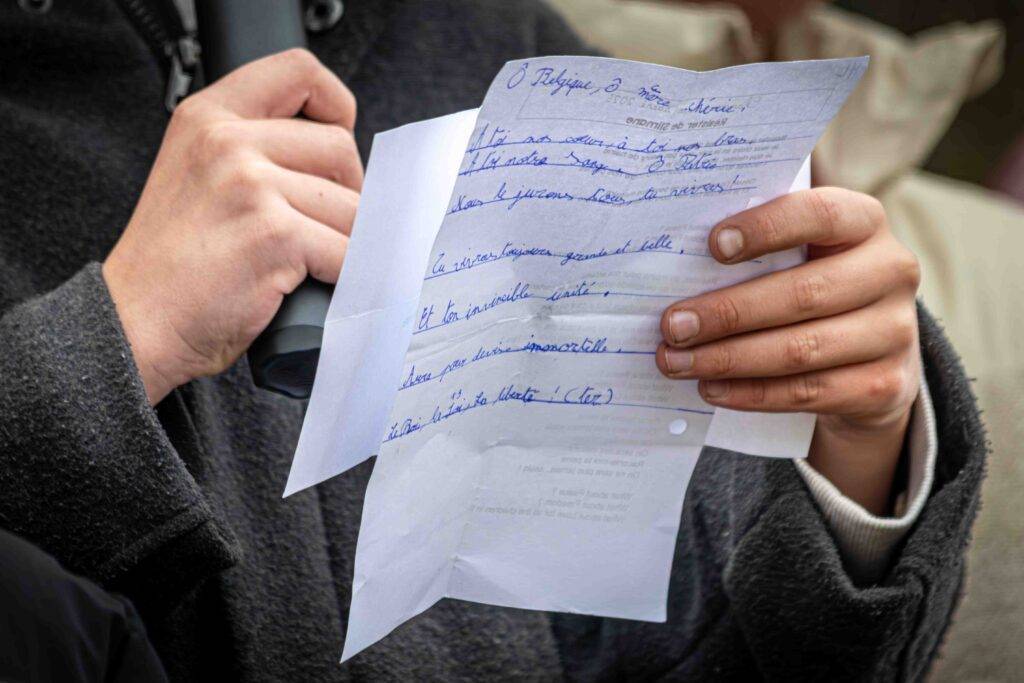 Ô Belgique, Ô mère chérie !
A toi nos cœurs, à toi nos bras,
A toi notre Sang, Ô Patrie
Nous le jurons tous, tu vivras !
Tu vivras toujours grande et belle,
Et ton invincible unité,
Aura pour devise immortelle,
Le Roi, la Loi, La liberté ! (ter)